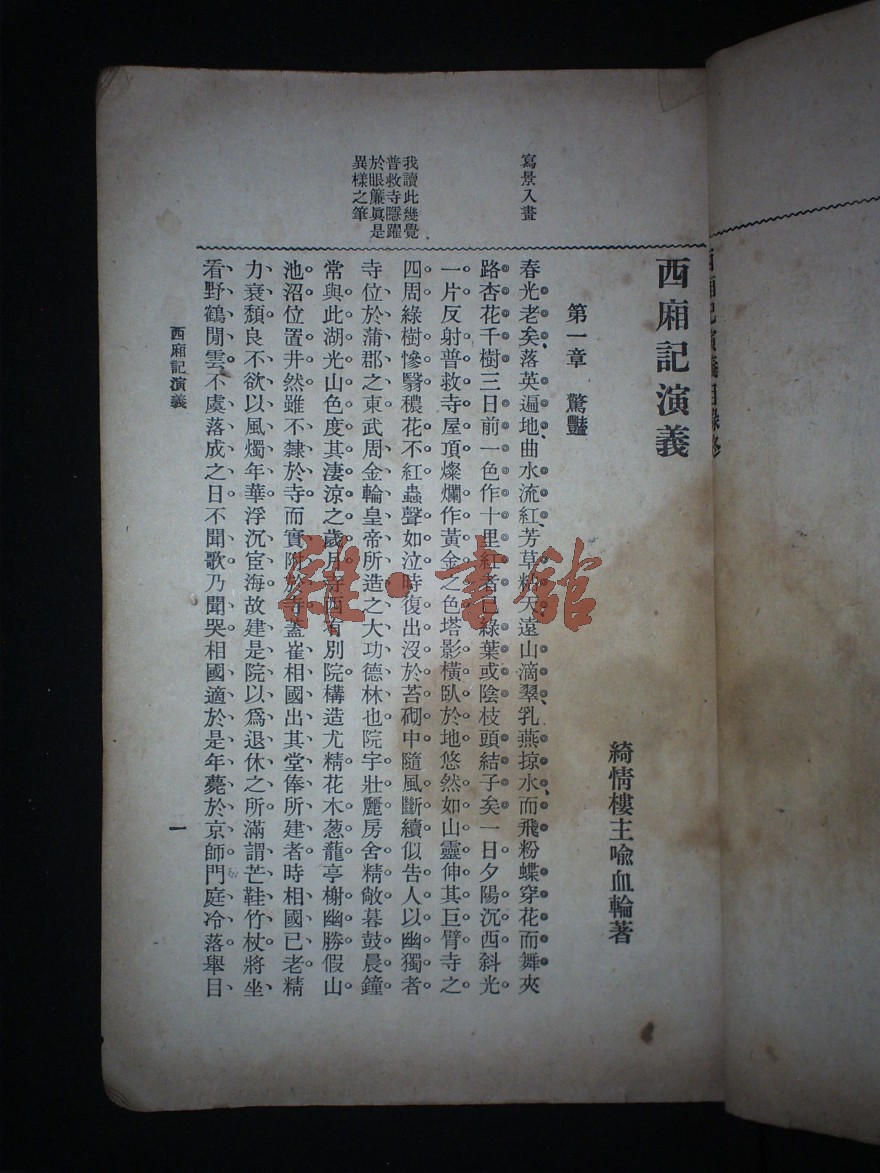 西廂記演義
綺情樓主喩血輪著
第一章　驚豔
春光老矣落英遍地曲水流紅芳草粘天遠山滴翠乳燕掠水而飛粉蝶穿花而舞夾
路杏花千樹三日前一色作十里紅者已綠葉或陰枝頭結子矣一日夕陽沉西斜光
一片反射普救寺屋頂燦爛作黃金之色塔影橫臥於地悠然如山靈伸其巨臂寺之
四周綠樹慘翳穠花不紅蟲聲如泣時復出沒於苔砌中隨風斷續似告人以幽獨者
寺位於蒲郡之東武周金輪皇帝所造之大功德林也院宇壯麗房舍精敞暮鼓晨鐘
常與此湖光山色度其淒涼之歲月寺西有別院構造尤精花木葱蘢亭榭幽勝假山
池沼位置井然雖不隸於寺而實附於寺蓋崔相國出其堂俸所建者時相國已老精
力衰頹良不欲以風燭年華浮沉宦海故建是院以爲退休之所滿謂芒鞋竹杖將坐
看野鶴閒雲不虞落成之日不聞歌乃聞哭相國適於是年薨於京師門庭冷落舉目
寫景入畫
我讀此幾覺
普救寺隱躍
於眼簾眞是
異樣之筆
西廂記演義
一
雜·書館